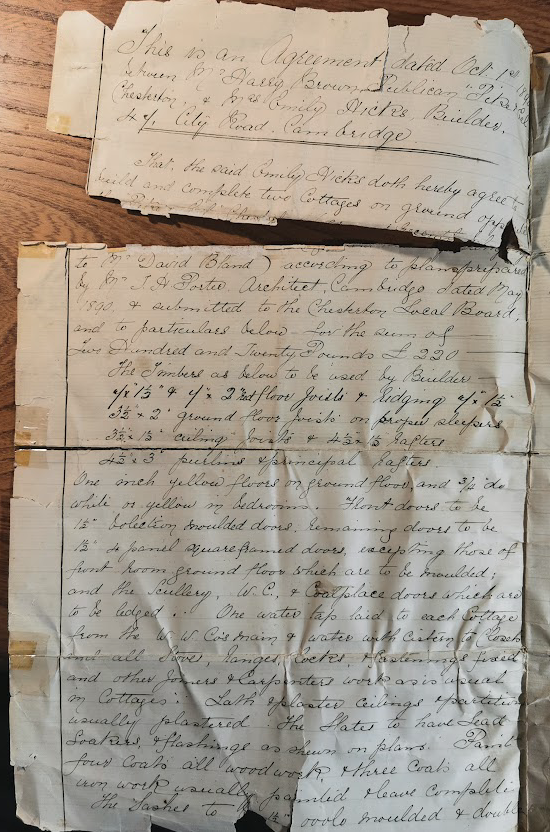 This is an Agreement dated Oct. 1st
between Mr Harry Brown Publican
Chesterton & Mrs Emily Hicks, Builder,
47 City Road. Cambridge.
That, the said Emily Hicks doth hereby agree to
build and complete two Cottages on ground
to Mr David Bland) according to plans prepared
by Mr J. A Porter, Architect, Cambridge dated May
1890, & submitted to the Chesterton Local Board,
and to particulars below - for the sum of
Two Hundred and Twenty Pounds £ 220
The Timbers as below to be used by Builder
floor Joists & Ridging
3½ x 2" ground floor Joists on proper sleepers
ceiling Joists & 4½ x 1½ Rafters
4½ x 3" purlins & principal Rafters
One inch yellow floors on ground floor and ¾" do
white or yellow in bedrooms. Front doors to be
1½" bolection moulded doors, remaining doors to be
1½" 4 panel square framed doors, excepting those of
front Room ground floor which are to be moulded;
and the Scullery, W.C, & Coalplace doors which are
to be ledged. . One water tap laid to each Cottage
from the W. W. Co's main & water with Cistern to Closet
and all Stoves, Ranges, Locks, & Fastenings fixed
and other Joiners & Carpenters work as is usual
in Cottages. Lath & plaster ceilings & partition
usually plastered. The Slates to have Lead
Soakers, & flashings as shewn on plans. Paint
four coats all wood work & three coats all
iron work usually painted & leave complete
The Sashes to 1¼" ovolo moulded & double